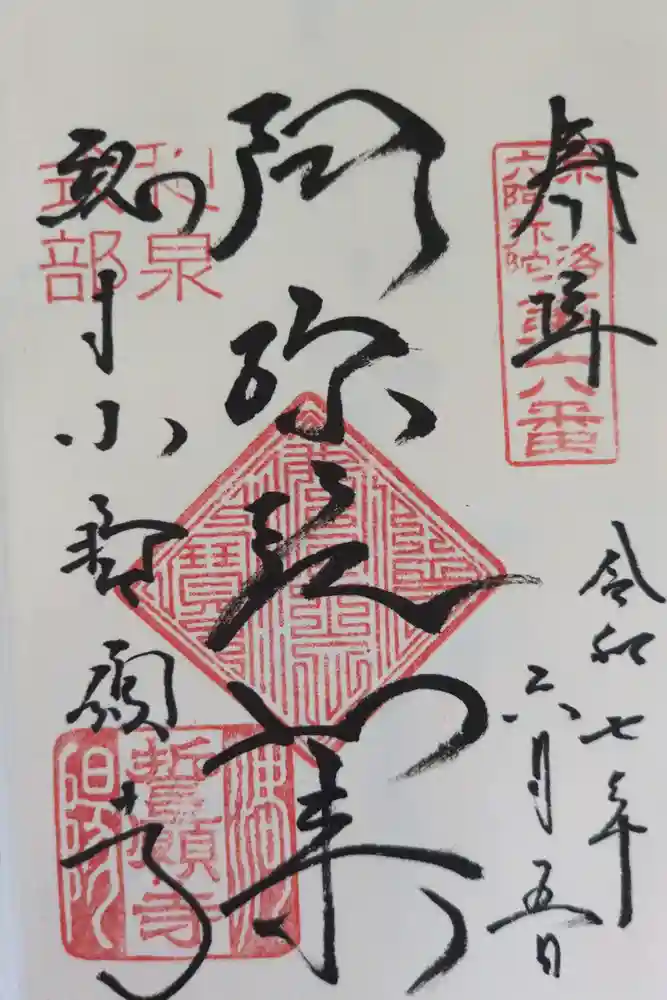 奉拝
京洛
六阿弥陀
第六番
令和七年
六月五日
阿弥陀如来
和泉
式部
誓願寺
誓願寺